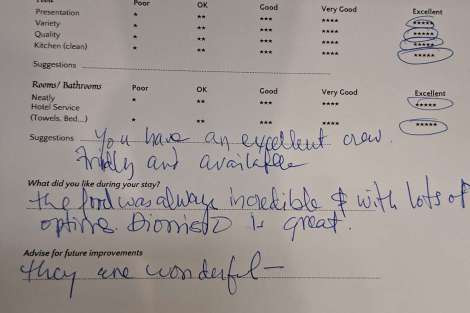 Poor OK Good Very Good Excellent
Presentation * ** *** **** *****
Variety * ** *** **** *****
Quality * ** *** **** *****
Kitchen (clean) * ** *** **** *****
Suggestions
Rooms/ Bathrooms Poor OK Good Very Good Excellent
Neatly * ** *** **** *****
Hotel Service
(Towels, Bed...) * ** *** **** *****
Suggestions You have an excellent crew.
and available
What did you like during your stay?
the food was always incredible & with lots of
is great.
Advise for future improvements
they are wonderful -